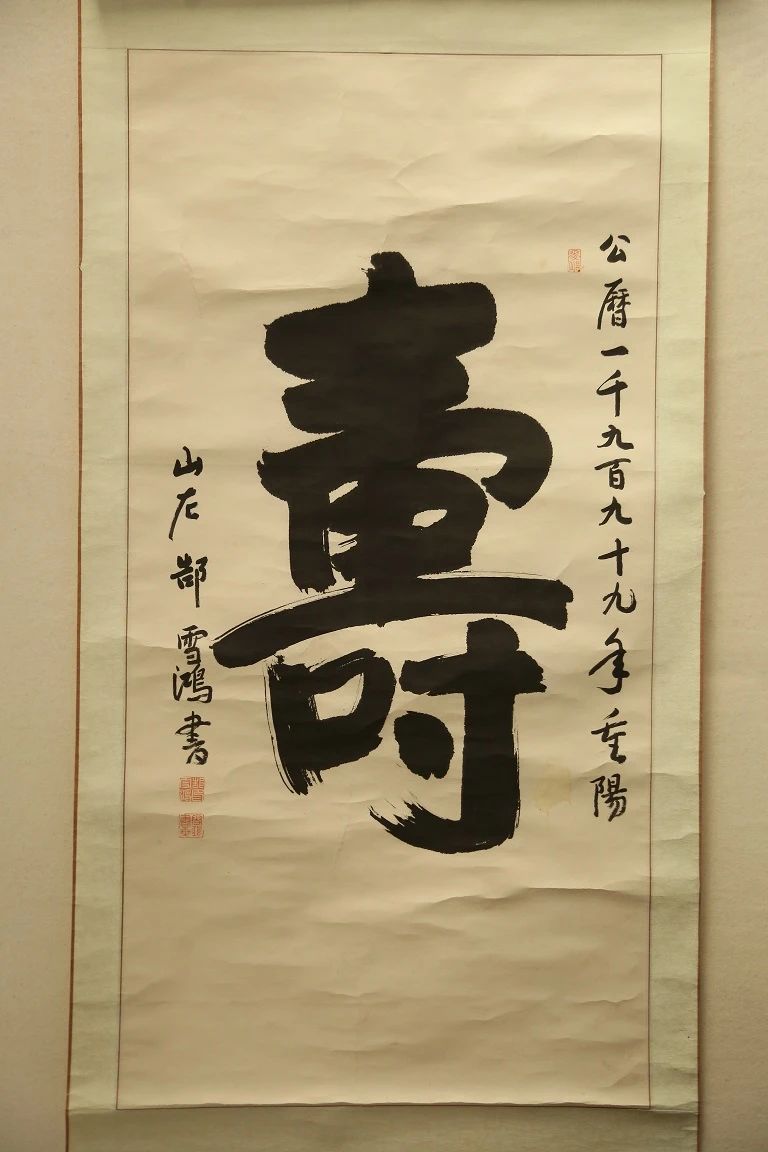 公曆一千九百九十九年重陽
壽
山左郜雪鴻書